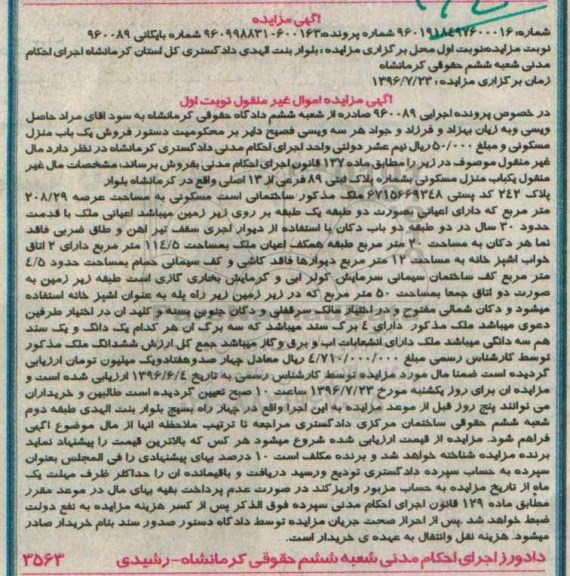 آگهی مزایده
شماره: ۹۶۰۱۹۱۸۴۹۷۶۰۰۰۱۶ شماره پرونده: ۹۶۰۹۹۸۸۳۱۰۶۰۰۱۶۳ شماره بایگانی ۹۶۰۰۸۹
نوبت مزایده: نوبت اول محل برگزاری مزایده: بلوار بنت الهدی دادگستری کل استان کرمانشاه اجرای احکام
مدنی شعبه ششم حقوقی کرمانشاه
زمان برگزاری مزایده: ۱۳۹۶/۷/۲۳
آگهی مزایده اموال غیر منقول نوبت اول
در خصوص پرونده اجرایی ۹۶۰۰۸۹ صادره از شعبه ششم دادگاه حقوقی کرمانشاه به سود آقای مراد حاصل
ویسی وبه زیان بهزاد و فرزاد و جواد هر سه ویسی فصیح دایر بر محکومیت دستور فروش یک باب منزل
مسکونی و مبلغ ۵۰/۰۰۰ ریال نیم عشر دولتی واحد اجرای احکام مدنی دادگستری کرمانشاه در نظر دارد مال
غیر منقول موصوف در زیر را مطابق ماده ۱۳۷ قانون اجرای احکام مدنی بفروش برساند: مشخصات مال غیر
منقول یکباب منزل مسکونی بشماره پلاک ثبتی ۸۹ فرعی از ۱۳ اصلی واقع در کرمانشاه بلوار
پلاک ۲۴۲ کد پستی ۶۷۱۵۶۶۹۳۴۸ ملک مذکور ساختمانی است مسکونی به مساحت عرصه ۲۰۸/۲۹
متر مربع که دارای اعیانی بصورت دو طبقه یک طبقه بر روی زیر زمین میباشد اعیانی ملک با قدمت
حدود ۳۰ سال در دو طبقه دو باب دکان با استفاده از دیوار آجری سقف تیر آهن و طاق ضربی فاقد
نما هر دکان به مساحت ۲۰ متر مربع طبقه همکف اعیان ملک بمساحت ۱۱۴/۵ متر مربع دارای ۲ اتاق
خواب آشپز خانه به مساحت ۱۲ متر مربع دیوارها فاقد کاشی و کف سیمانی حمام بمساحت حدود ۴/۵
متر مربع کف ساختمان سیمانی سرمایش کولر آبی و گرمایش بخاری گازی است طبقه زیر زمین به
صورت دو اتاق جمعا بمساحت ۵۰ متر مربع که در زیر زمین زیر راه پله به عنوان آشپز خانه استفاده
میشود و دکان شمالی مفتوح و در اختیار مالک سرقفلی و دکان جنوبی بسته و کلید آن در اختیار طرفین
دعوی میباشد ملک مذکور دارای ۴ برگ سند میباشد که سه برگ آن هر کدام یک دانگ و یک سند
هم سه دانگی میباشد ملک دارای انشعابات آب و برق وگاز میباشد جمع کل ارزش ششدانگ ملک مذکور
توسط کارشناس رسمی مبلغ ۴/۷۱۰/۰۰۰/۰۰۰ ریال معادل چهار صدوهفتادویک میلیون تومان ارزیابی
گردیده است ضمنا مال مورد مزایده توسط کارشناس رسمی به تاریخ ۱۳۹۶/۶/۴ ارزیابی شده است و
مزایده آن برای روز یکشنبه مورخ ۱۳۹۶/۷/۲۳ ساعت ۱۰ صبح تعیین گردیده است طالبین و خریداران
می توانند پنج روز قبل از موعد مزایده به این اجرا واقع در چهار راه بسیج بلوار بنت الهدی طبقه دوم
شعبه ششم حقوقی ساختمان مرکزی دادگستری مراجعه تا ترتیب ملاحظه آنها از مال موضوع آگهی
فراهم شود. مزایده از قیمت ارزیابی شده شروع میشود هر کس که بالاترین قیمت را پیشنهاد نماید
برنده مزایده شناخته خواهد شد و برنده مکلف است ۱۰ درصد بهای پیشنهادی را فی المجلس بعنوان
سپرده به حساب سپرده دادگستری تودیع ورسید دریافت و باقیمانده آن را حداکثر ظرف مهلت یک
ماه از تاریخ مزایده به حساب مزبور واریز کند در صورت عدم پرداخت بقیه بهای مال در موعد مقرر
مطابق ماده ۱۲۹ قانون اجرای احکام مدنی سپرده فوق الذکر پس از کسر هزینه مزایده به نفع دولت
ضبط خواهد شد .پس از احراز صحت جریان مزایده توسط دادگاه دستور صدور سند بنام خریدار صادر
میشود. هزینه نقل وانتقال به عهده ی خریدار است.
دادورز اجرای احکام مدنی شعبه ششم حقوقی کرمانشاه-رشیدی ۳۵۶۳